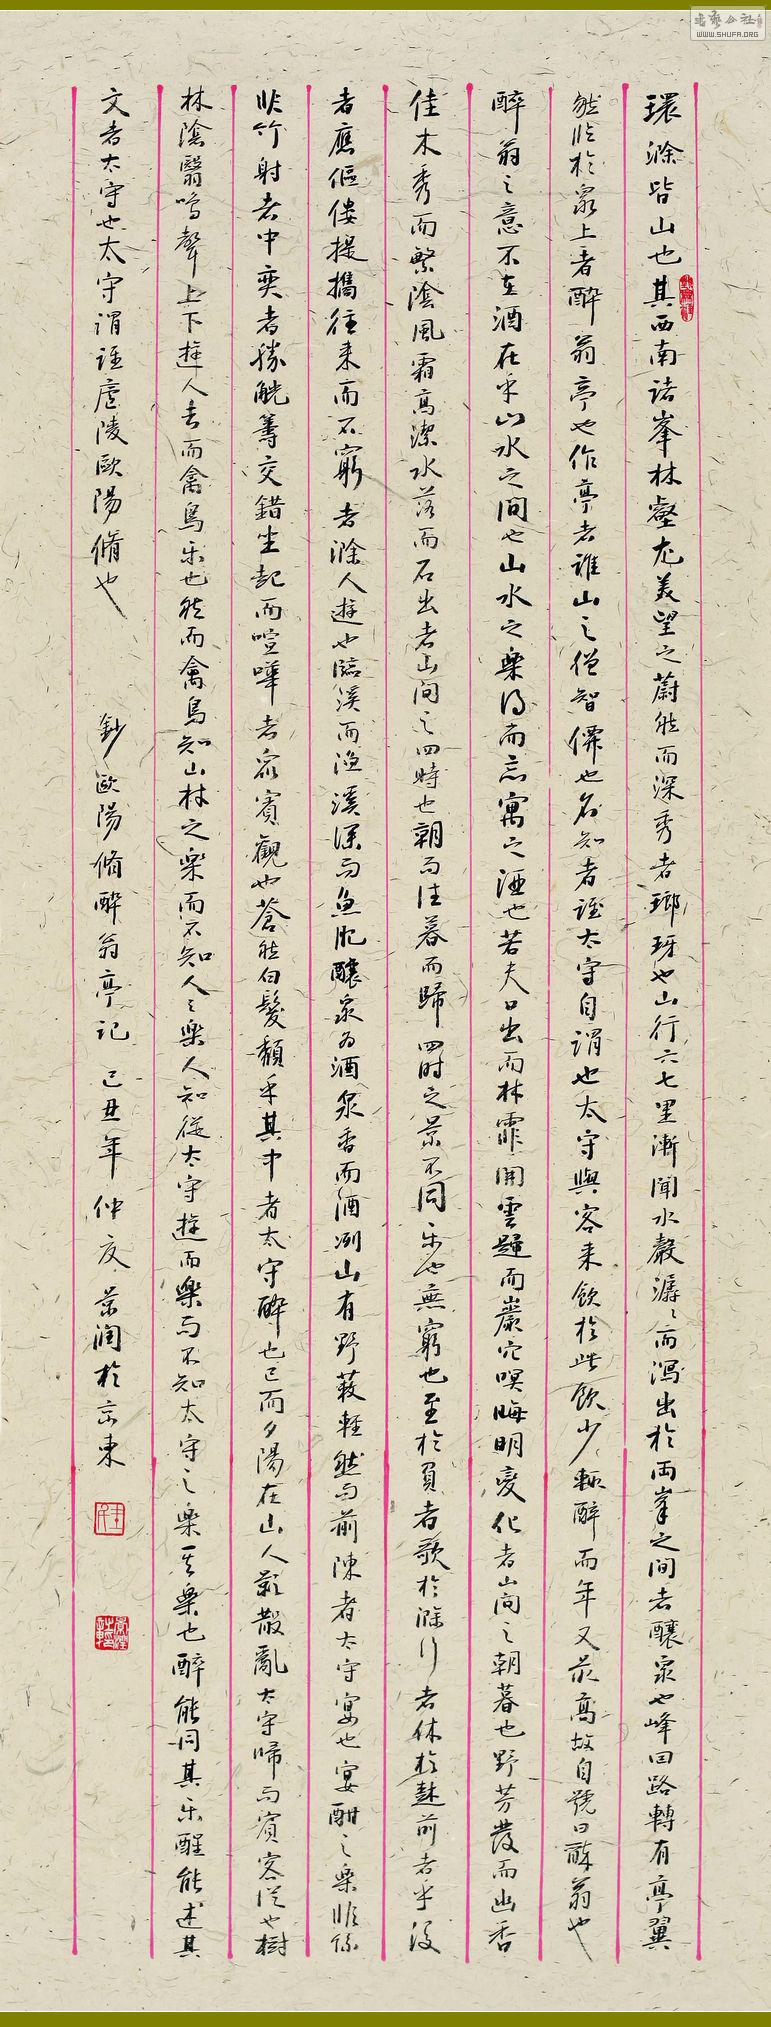 環滁皆山也其西南諸峯林壑尤美望之蔚然而深秀者瑯玡也山行六七里漸聞水聲潺〻而瀉出於兩峯之間者釀泉也峰回路轉有亭翼
然臨於泉上者醉翁亭也作亭者誰山之僧智僊也名知者誰太守自謂也太守與客来飲於此飲少輒醉而年又最高故自號曰醉翁也
醉翁之意不在酒在乎山水之間也山水之樂得而忘寓之酒也若夫日出而林霏開雲歸而巖穴暝晦明變化者山间之朝暮也野芳發而幽香
佳木秀而繁陰風霜高潔水落而石出者山间之四時也朝而往暮而歸四时之景不同乐也無窮也至於負者歌於滁行者休於樹前者乎後
者應傴僂提攜往来而不窮者滁人遊也臨溪而漁溪深而魚肥釀泉為酒泉香而酒冽山有野蔌雜然而前陳者太守宴也宴酣之樂非絲
非竹射者中奕者勝觥籌交錯坐起而喧嘩者衆賓觀也蒼然白髮頹乎其中者太守醉也已而夕陽在山人影散亂太守歸而賓客從也樹
林陰翳鸣聲上下遊人去而禽鳥乐也然而禽鳥知山林之樂而不知人〻樂人知從太守遊而樂而不知太守之樂其樂也醉能同其乐醒能述其
文者太守也太守谓誰廬陵歐陽脩也 鈔歐陽脩醉翁亭記 己丑年仲夏景润於京東
書藝公社
WWW.SHUFA.ORG